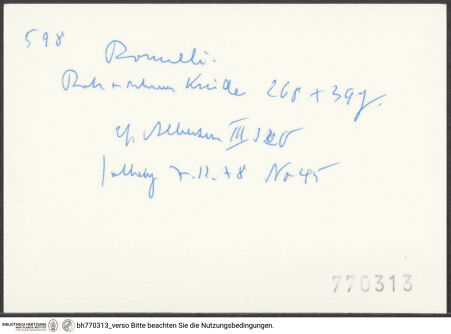 598
Romelli.
Rote + schwarze Kreide 268 x 397.
cf. Albertina III 320
Sotheby 7.12.78 No 45
770313
BIBLIOTHECA HERTZIANA bh770313_verso Bitte beachten Sie die Nutzungsbedingungen.